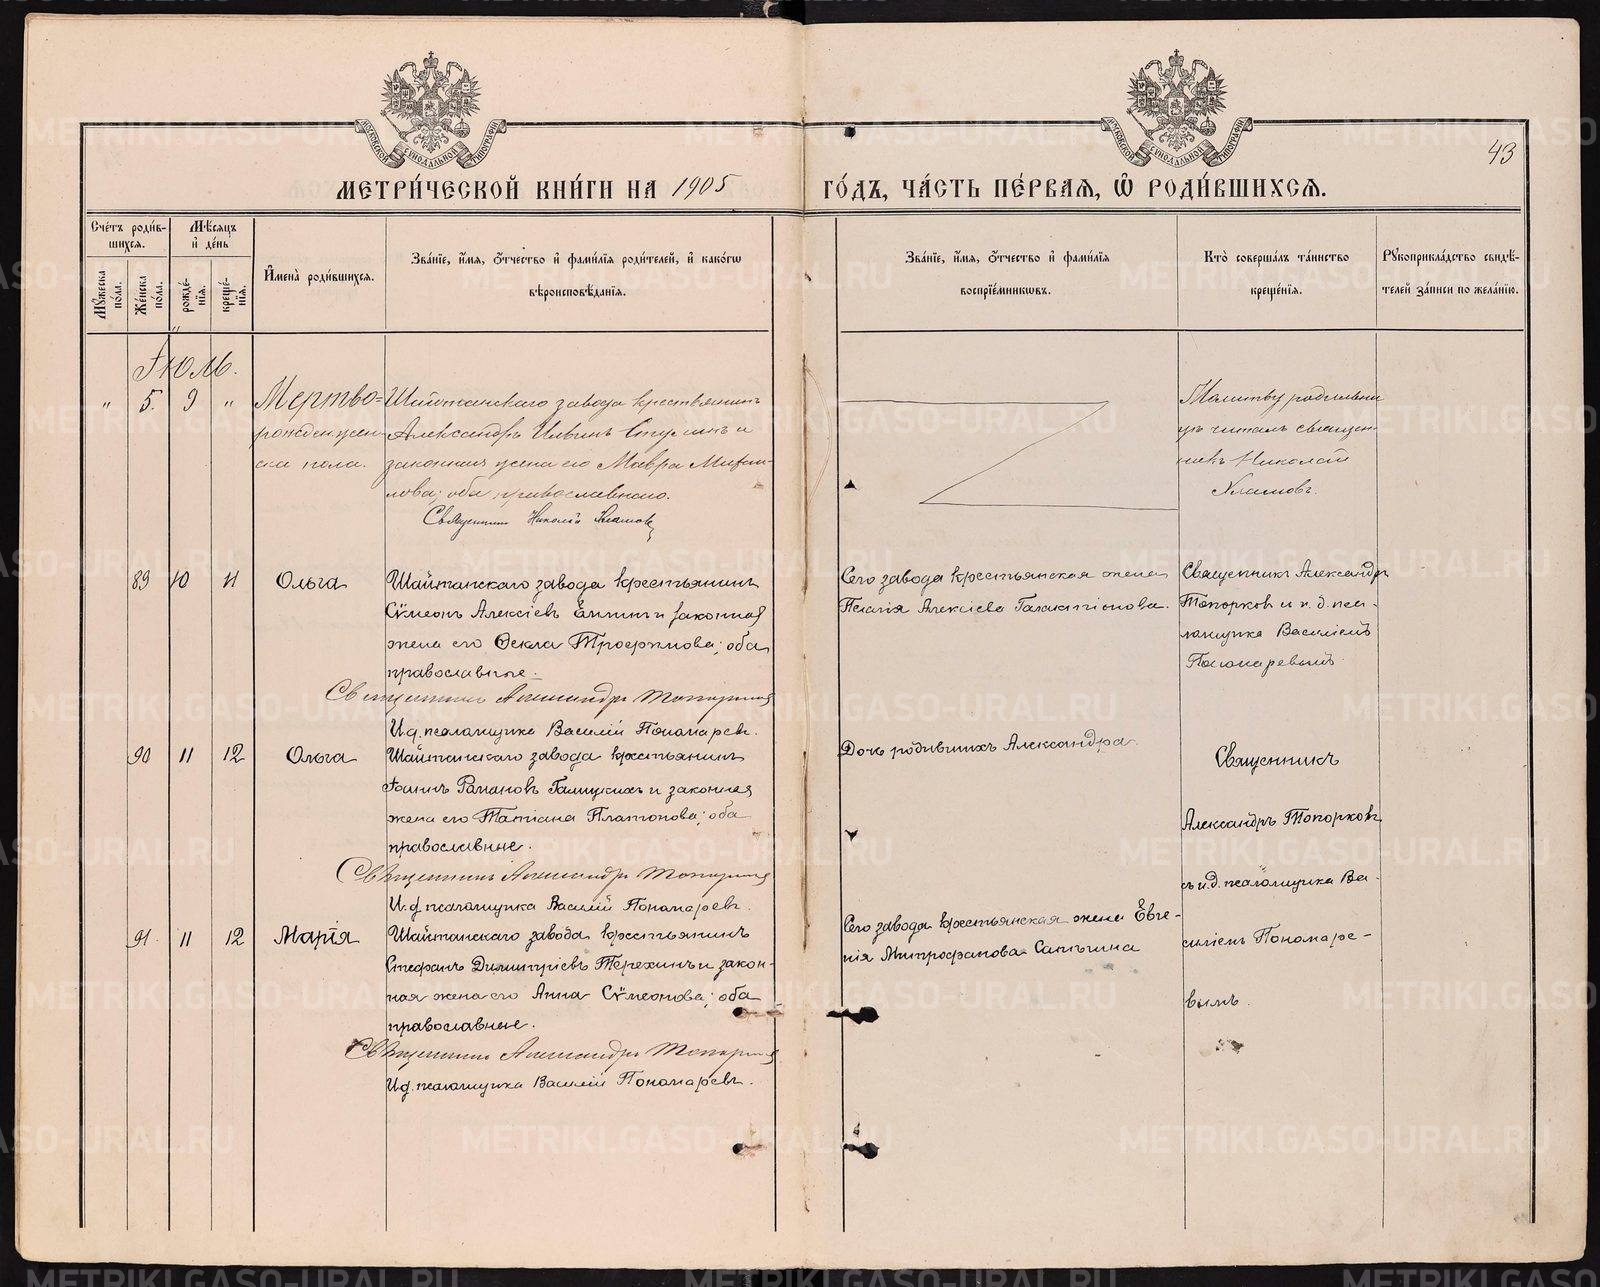 МЕТРИ́ЧЕСКОЙ КНИ́ГИ НА 1905 ГО́ДЪ, ЧА́СТЬ ПЕ́РВАѦ, Ѡ҆ РОДИ́ВШИХСѦ.
43
Сче́тъ роди́в-
шихсѧ.
Мѣ́сѧцъ
и҆ де́нь
Мꙋ́жеска по́ла.
Же́нска по́ла.
рожде́-нїѧ.
креще́-нїѧ.
И҆мена̀ роди́вшихсѧ.
Зва́нїе, и҆́мѧ, ѻ҆́тчество и҆ фами́лїѧ роди́телей, и҆ како́гѡ
вѣроисповѣ́данїѧ.
Зва́нїе, и҆́мѧ, ѻ҆́тчество и҆ фами́лїѧ
воспрїе́мникѡвъ.
Кто̀ соверша́лъ та́инство
креще́нїѧ.
Рꙋкоприкла́дство свидѣ́-
телей за́писи по жела́нїю.
Іюль.
" 5. 9 " Мертво-
рожден. жен-
ска пола.
Шайтанскаго завода крестьянинъ
Александръ Ильинъ и
законная жена его Мавра Михаи-
лова; оба православнаго.
Священникъ Николай
Молитву родильни
цѣ читалъ священ-
никъ Николай
89 10 11 Ольга
Шайтанскаго завода крестьянинъ
Сѵмеонъ Алексіевъ Ёлкинъ и законная
жена его Ѳекла Трофимова; оба
православные.
Священникъ Александръ Топорковъ
И.д. псаломщика Василій Пономаревъ.
Сего завода крестьянская жена
Пелагія Алексіева Галактіонова.
Священникъ Александръ
Топорковъ и и. д. пса-
ломщика Василіемъ
Пономаревымъ.
90 11 12 Ольга
Шайтанскаго завода крестьянинъ
Іоаннъ Романовъ Галицкихъ и законная
жена его Татіана Платонова; оба
православные.
Священникъ Александръ Топорковъ
И.д. псаломщика Василій Пономаревъ.
Дочь родившихъ Александра.
Священникъ
Александръ Топорковъ
съ и.д. псаломщика Ва-
силіемъ Пономаре-
вымъ.
91. 11 12 Марія
Шайтанскаго завода крестьянинъ
Стефанъ Димитріевъ Терехинъ и закон-
ная жена его Анна Сѵмеонова; оба
православные.
Священникъ Александръ Топорковъ
И.д. псаломщика Василій Пономаревъ.
Сего завода крестьянская жена Евге-
нія Митрофанова
METRIKI.GASO-URAL.RU